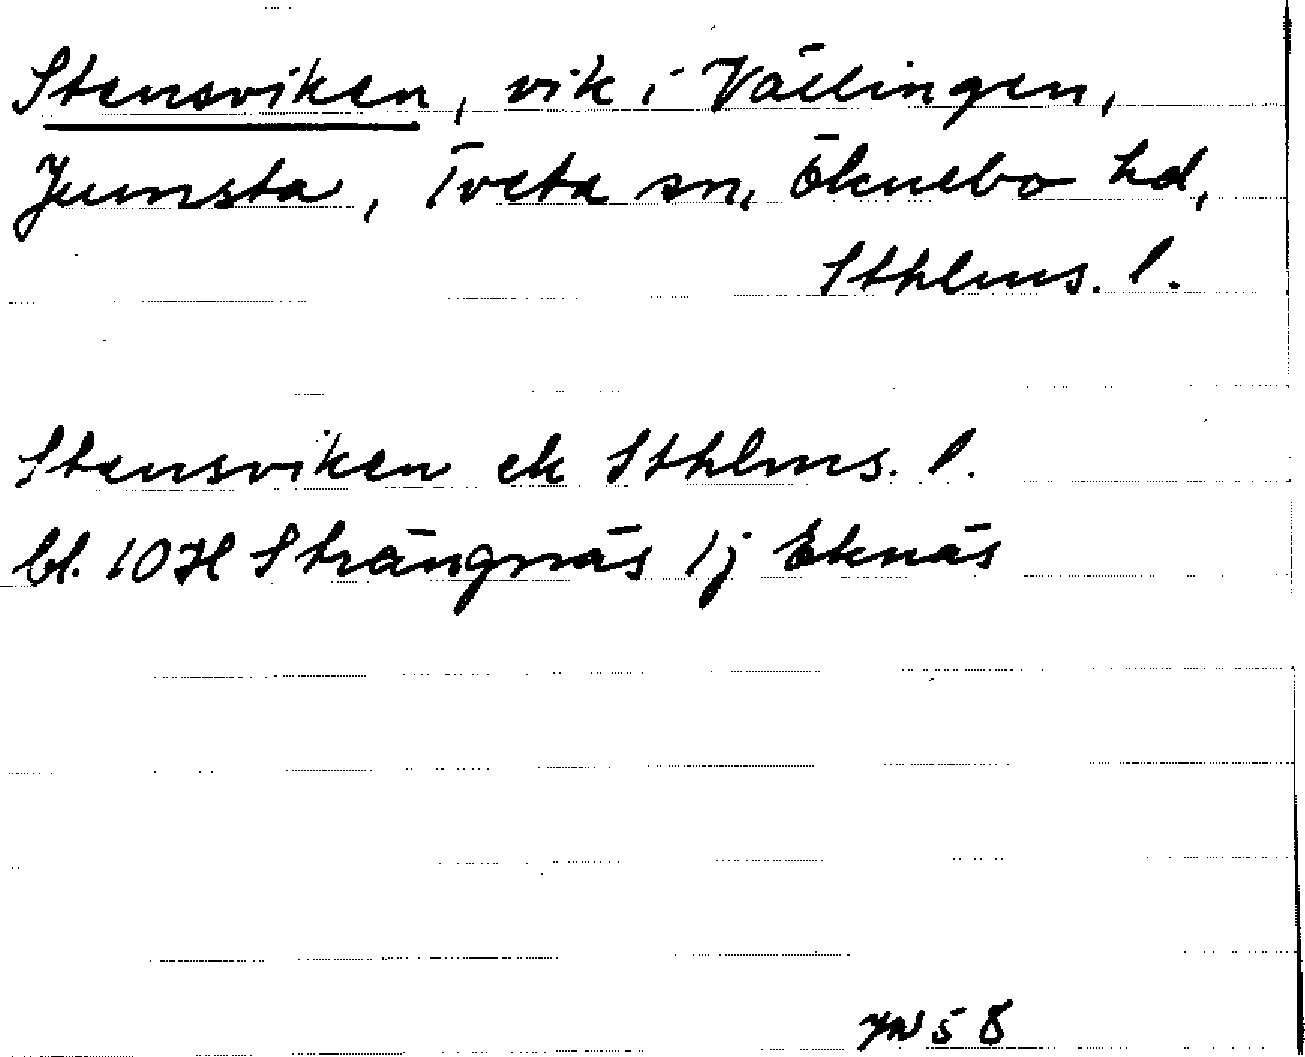 Stensviken, vik i Vällingen,
Jumsta, Tveta sn, Öknebo hd,
Sthlms. l.
Stensviken ek Sthlms. l.
bl. 10H Strängnäs 1j Eknäs
58